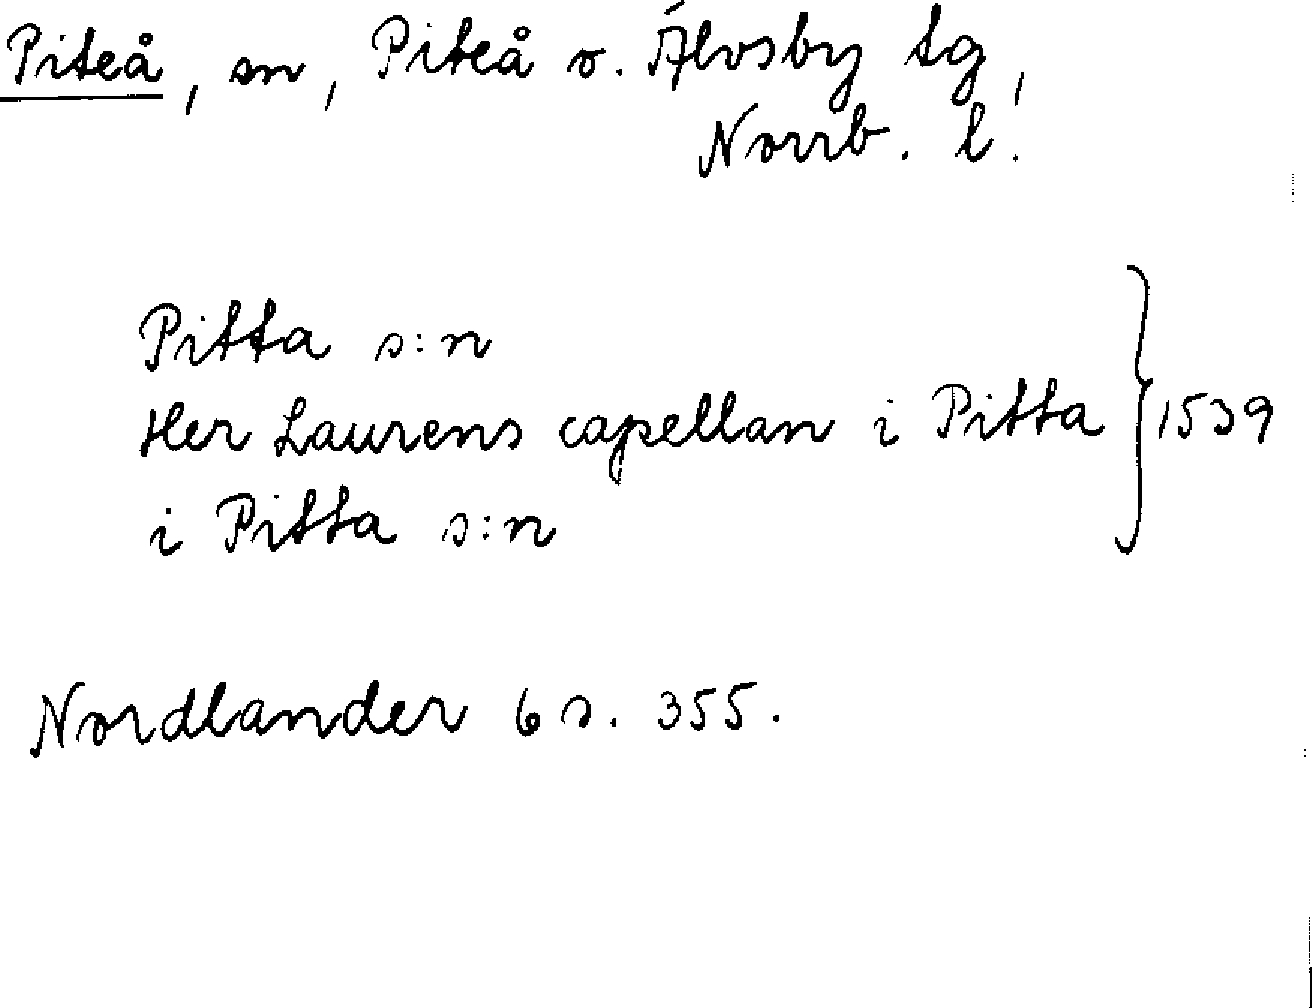 Piteå, sn, Piteå o. Älvsby tg,
Norrb. l.
Pitta s:n
Her Laurens capellan i Pitta } 1539
i Pitta s:n
Nordlander 6 s. 355.